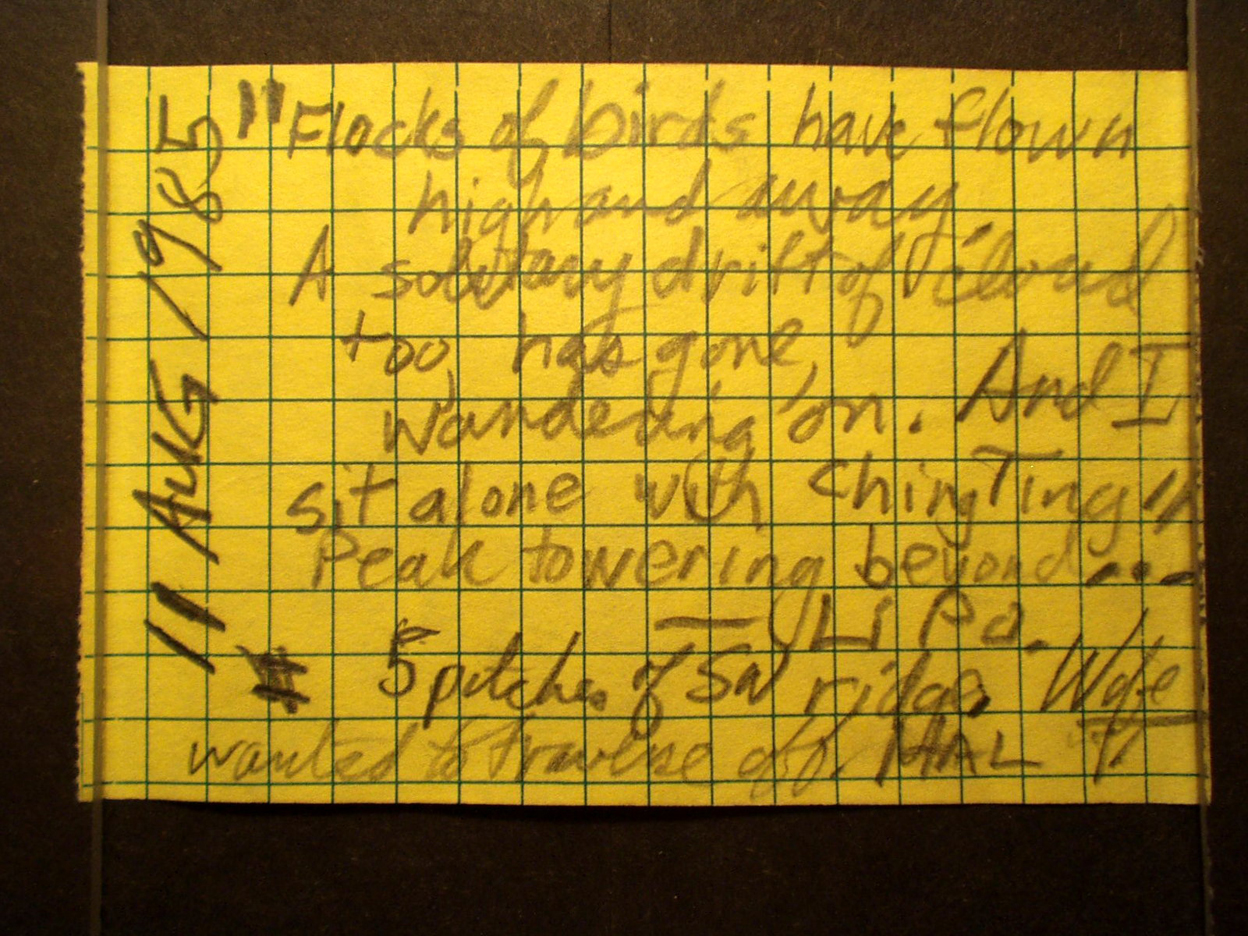 11 AUG 1985
"Flocks of birds have flown
high and away,
A solitary drift of cloud
too, has gone,
wandering on. And I
sit alone with Ching Ting
Peak towering beyond..."
— Li Po.
5 pitches of SW ridge. Wife
wanted to traverse off.